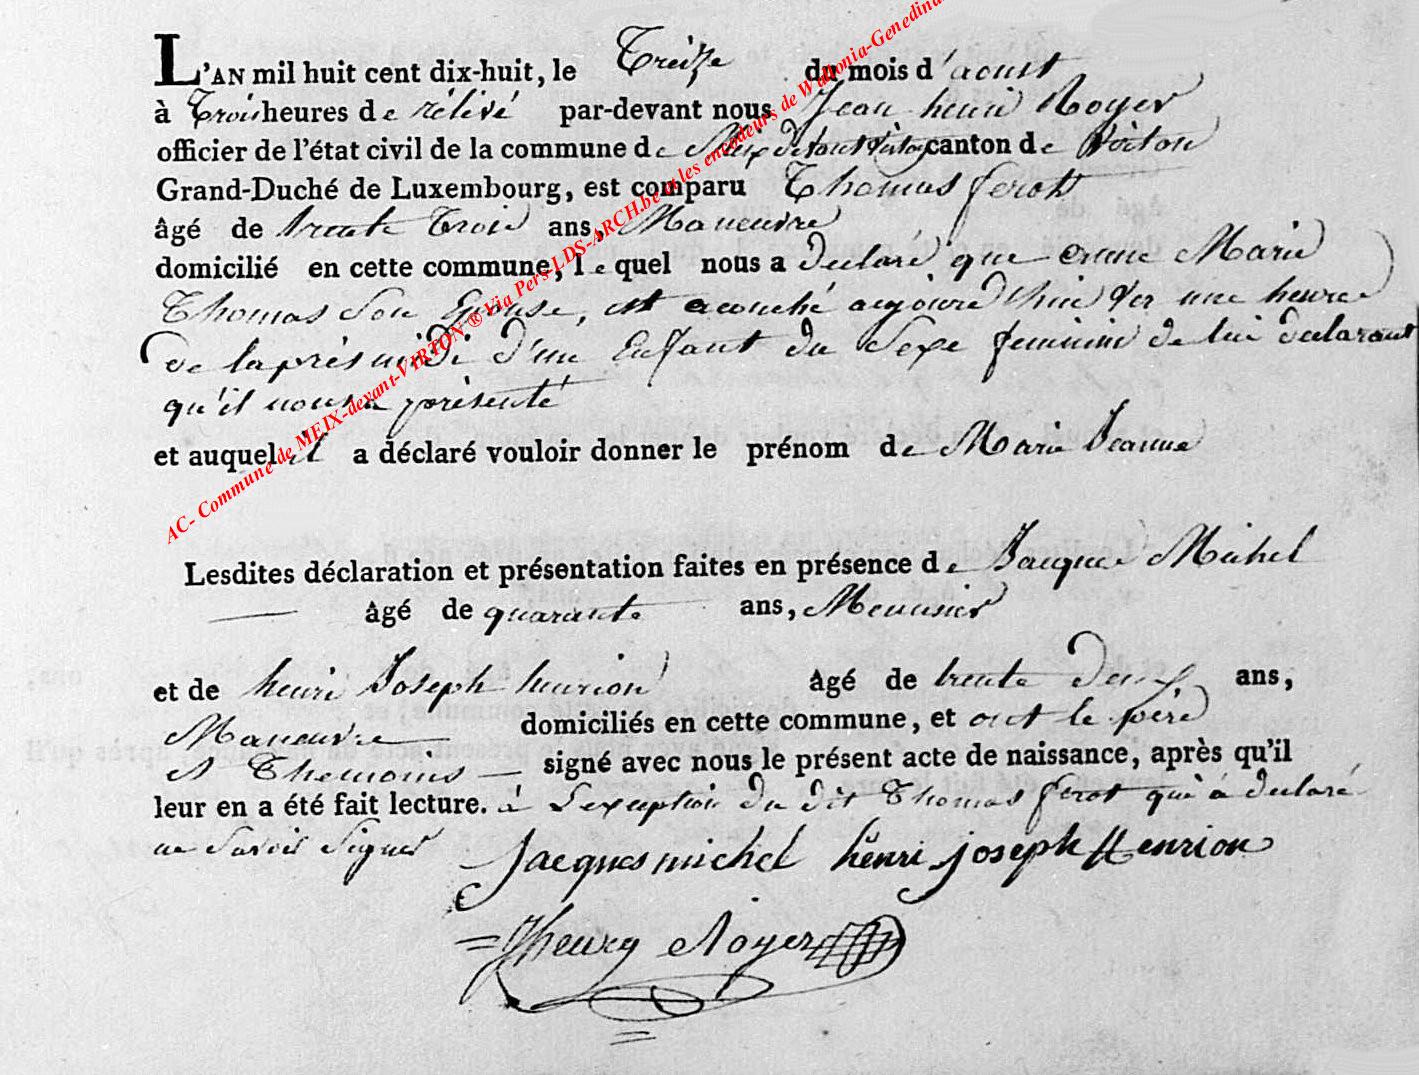 L'AN mil huit cent dix-huit, le Treize du mois d'aoust
à Trois heures de rélivé par-devant nous Jean henri Royer
officier de l'état civil de la commune de Meix devant Virton canton de Virton
Grand-Duché de Luxembourg, est comparu Thomas ferot
âgé de trente Trois ans, Maneuvre
domicilié en cette commune, lequel nous a declaré que Marie
Thomas Son Epouse, est acouché aujourd'hui une heure
de laprés midi d'un Enfant du Sexe feminin de lui declarant
qu'il nous a présenté
et auquel il a déclaré vouloir donner le prénom de Marie Jeanne
Lesdites déclaration et présentation faites en présence de Jacque Michel
— âgé de quarante ans, Meunier
et de henri Joseph henrion âgé de trente Deux ans,
Maneuvre — domiciliés en cette commune, et ont le pere
et Themoins — signé avec nous le présent acte de naissance, après qu'il
leur en a été fait lecture. à L'exception du dit Thomas ferot qui à declaré
ne Savoir Signer
Jacques michel henri joseph Henrion
JHenry Royer
AC- Commune de MEIX-devant-VIRTON ® Via Pers-LDS-ARCH.be et les encodeurs de Wallonia-Genedina